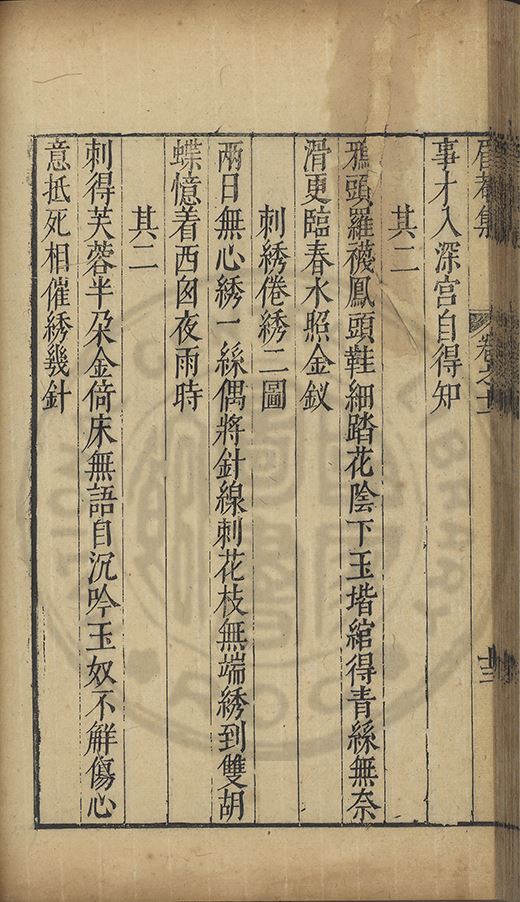 眉菴集 卷之十二 十三
事才入深宮自得知
其二
鴉頭羅襪鳳頭鞋細踏花陰下玉堦綰得青絲無奈
滑更臨春水照金釵
刺綉倦綉二圖
兩日無心綉一絲偶將針線刺花枝無端綉到雙胡
蝶憶着西囪夜雨時
其二
刺得芙蓉半朵金倚床無語自沉吟玉奴不觧傷心
意抵死相催綉幾針